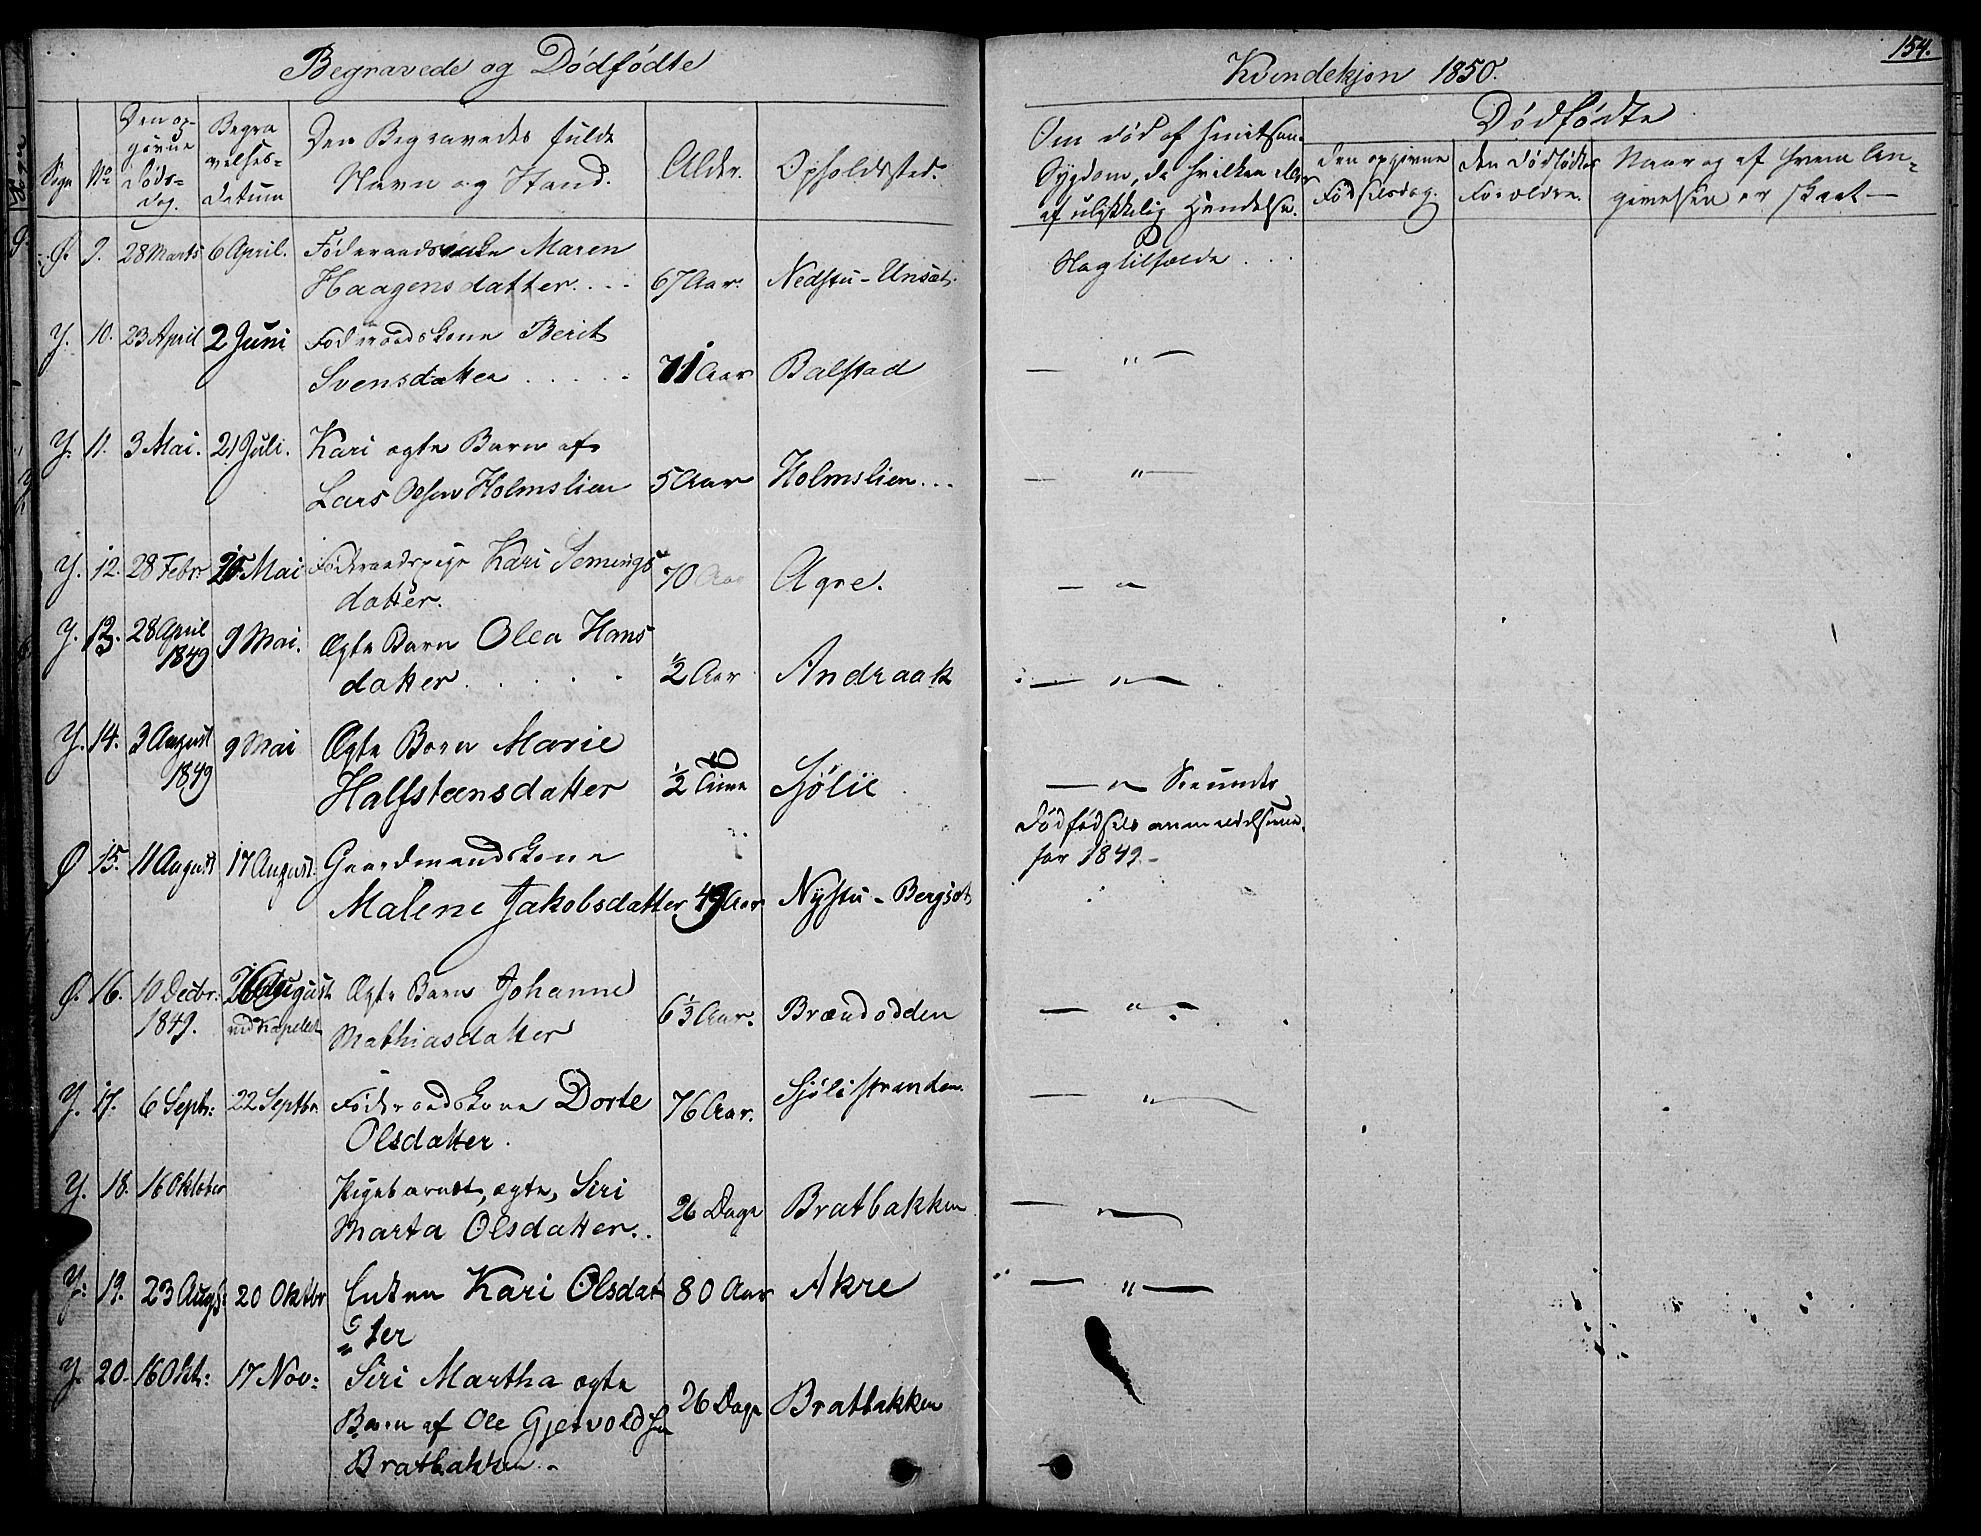 154.
Begravede og Dødfødte
Kvindekjøn 1850.
Sogn
No
Den op-
givne
Døds-
dag.
Begra
velses-
datum
Den Begravedes fulde
Navn og Stand.
Alder.
Opholdssted.
Om død af smitsom
Sygdom, da hvilken eller
af ulykkelig Hændelse.
Dødfødte
den opgivne
Fødselsdag.
den dødfødtes
Forældre.
Naar og af hvem An-
givelsen er skeet
Ø. 9. 28 Marts 6 April. Føderaadsenke Maren
Haagensdatter. 67 Aar. Nedstu-Unsæt.
Slagtilfælde
Y. 10. 23 April 2 Juni Føderaadskone Berit
Svensdatter 71 Aar Balstad — " —
Y. 11. 3 Mai. 21 Juli. Kari ægte Barn af
Lars Olsen Holmslien 5 Aar Holmslien — " —
Y. 12. 28 Febr Mai Føderaadspige Kari Semings
datter. 70 Aar Agre. — " —
Y. 13. 28 April 9 Mai. Ægte Barn Olea Hans
1849
datter. ½ Aar Andraak — " —
Y. 14. 3 August 9 Mai Ægte Barn Marie
1849
Halfsteensdatter ½ Time Sjølie — " —
Dødfødsels
for 1849.
Ø 15. 11 August 17 August. Gaardmandskone
Malene Jakobsdatter 49 Aar Nystu-Bergset
Ø. 16. 10 Decbr. August Ægte Barn Johanne
1849. ved Kapellet Mathiasdatter 6½ Aar. Brændodden — " —
Y. 17. 6 Septr: 22 Septbr Føderaadskone Dorte
Olsdatter. 76 Aar. Sjølistranden. — " —
Y. 18. 16 Oktober Pigebarnet, ægte, Siri
Marta Olsdatter. 26 Dage Bratbakken — —
Y. 19. 23 Augs: 20 Oktbr Enken Kari Olsdat
ter 80 Aar Akre — " —
Y. 20. 16 Okt: 17 Nov: Siri Martha ægte
Barn af Ole Gjervoldsen 26 Dage Bratbakken
Bratbakken.